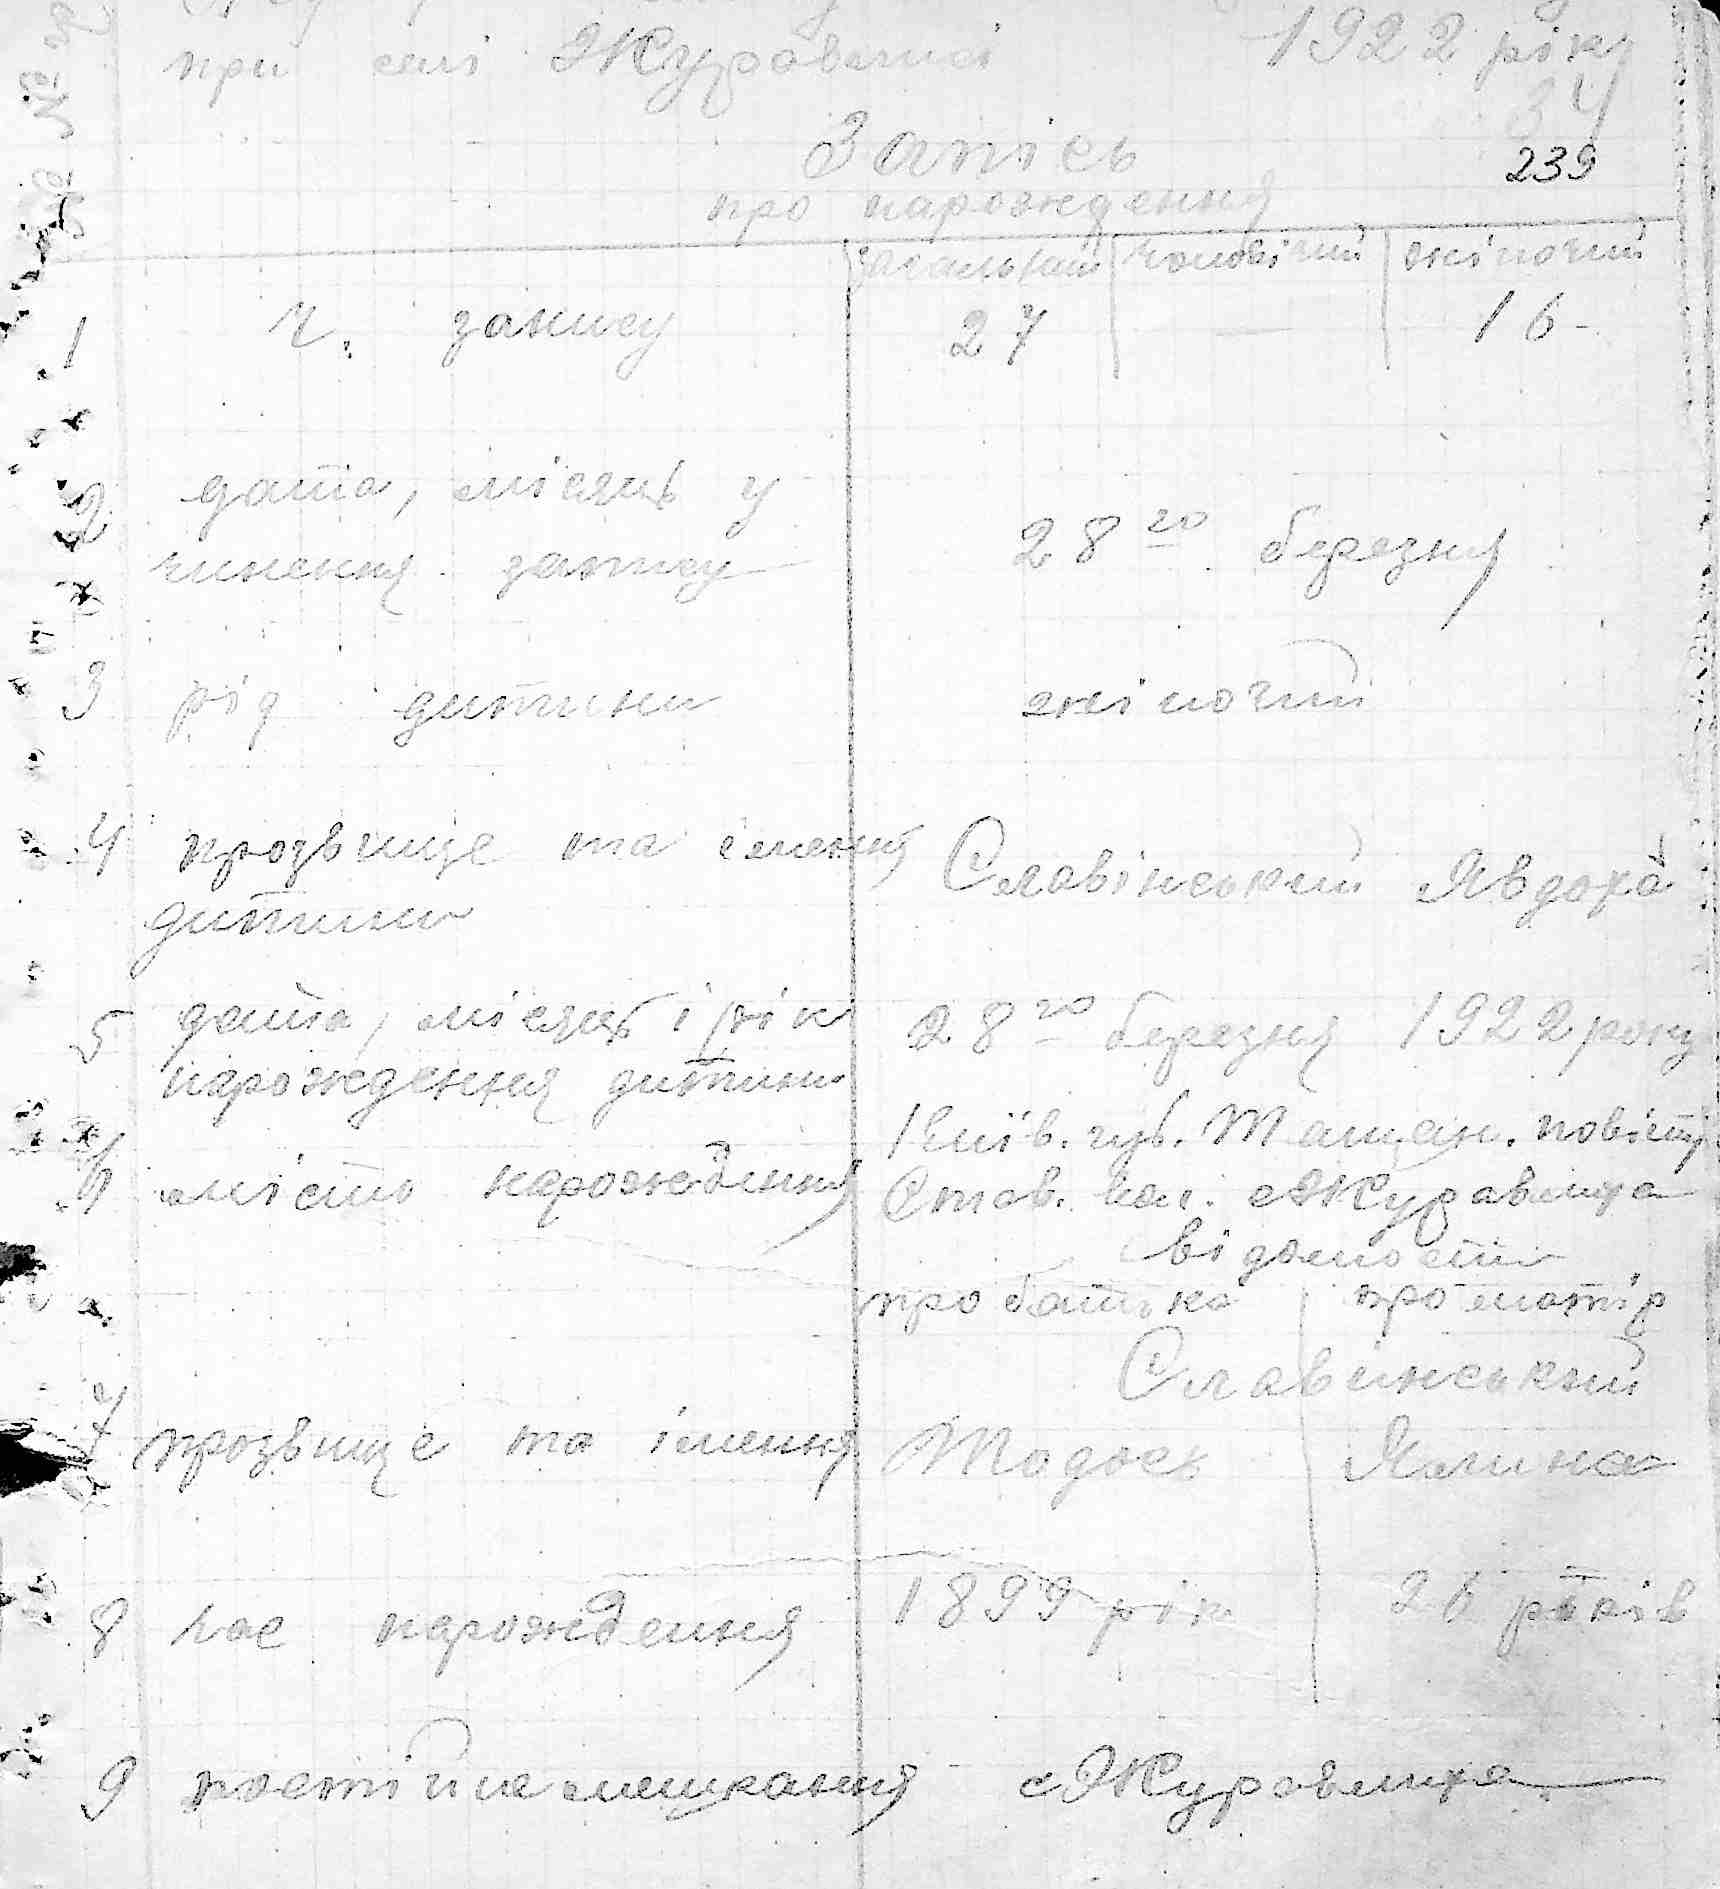 при селі Журавлисі 1922 ріку
34
Запісь 239
про нарождення
загальний чоловічий жіночий
1 ч. запису 27 — 16
2 дата, місяць у
чинення запису 28го березня
3 рід дитини жіночий
4 прозвище та імення Славінський Явдоха
дитини
5 дата, місяць і рік 28го березня 1922 року
нарождення дитини
Київ. губ. Таращан. повіту
місто нарождення Став. вол. с Журавлиха
відомости
про батька про матір
Славінський
7 прозвище та імення Тодось Ялина
8 час нарождення 1899 рік 26 років
9 постійне мешкання с Журавлиха